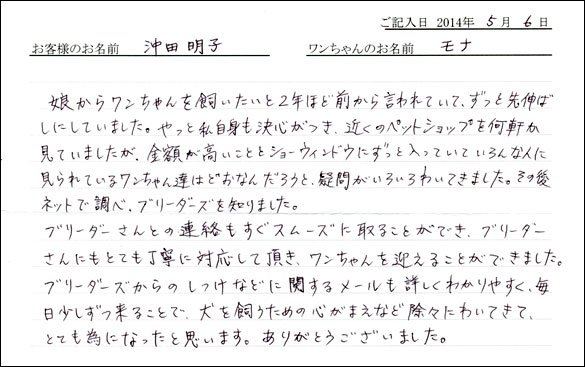 ご記入日 2014年 5月 6日
お客様のお名前 沖田明子 ワンちゃんのお名前 モナ
娘からワンちゃんを飼いたいと2年ほど前から言われていて、ずっと先伸ば
しにしていました。やっと私自身も決心がつき、近くのペットショップを何軒か
見ていましたが、金額が高いこととショーウィンドウにずっと入っていていろんな人に
見られているワンちゃん達はどおなんだろうと、疑問がいろいろわいてきました。その後
ネットで調べ、ブリーダーズを知りました。
ブリーダーさんとの連絡もすぐスムーズに取ることができ、ブリーダー
さんにもとても丁寧に対応して頂き、ワンちゃんを迎えることができました。
ブリーダーズからのしつけなどに関するメールも詳しくわかりやすく、毎
日少しずつ来ることで、犬を飼うための心がまえなど除々にわいてきて、
とても為になったと思います。ありがとうございました。